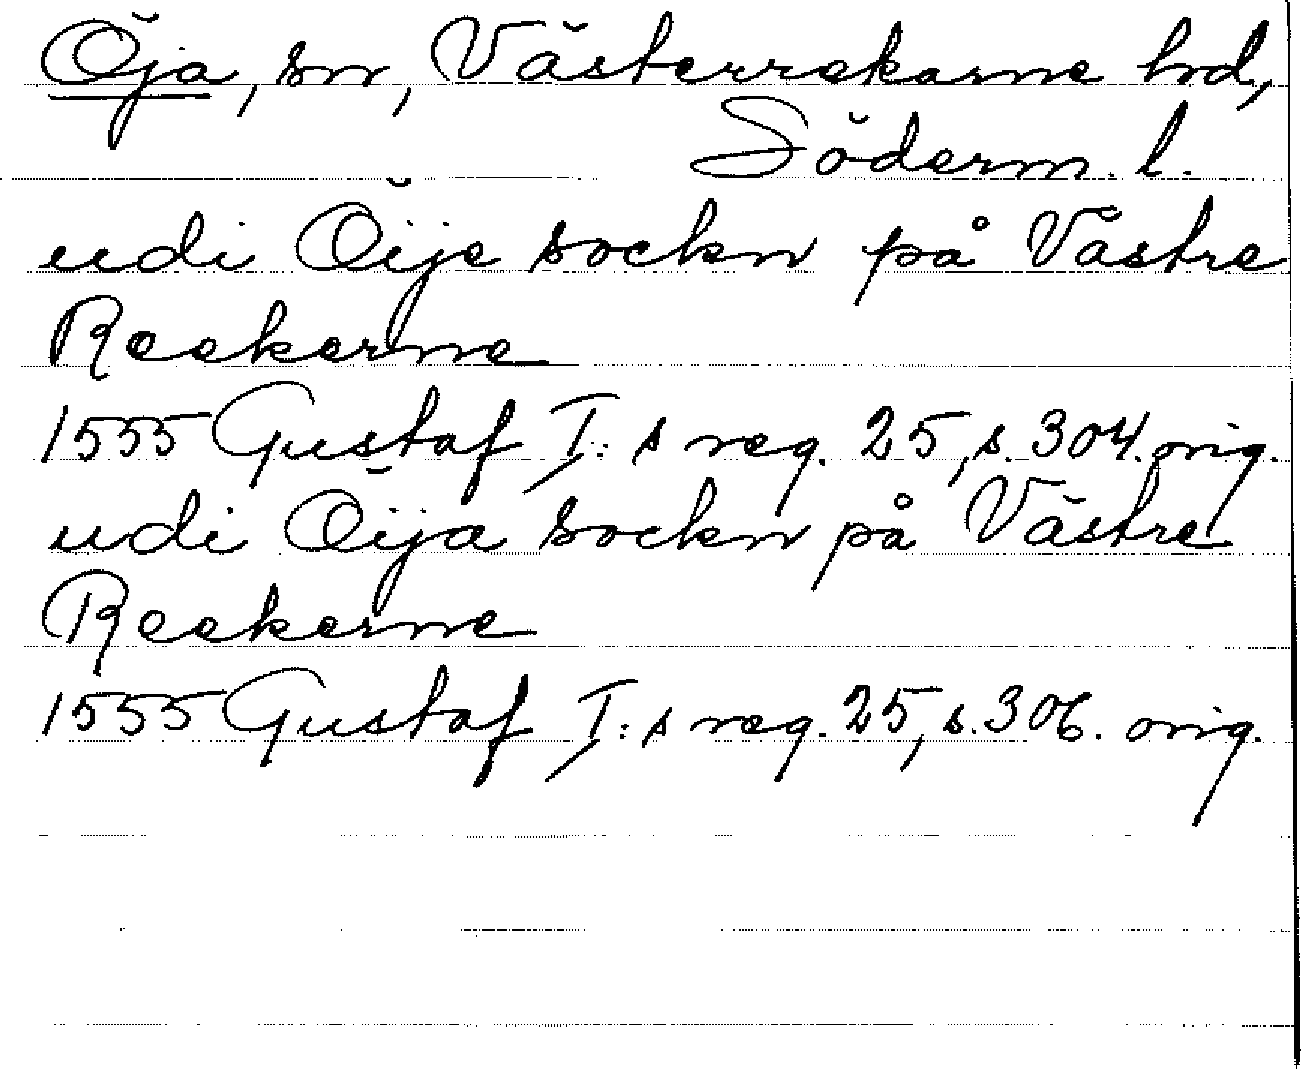 Öja, sn, Västerrekarne hd,
Söderm. l.
udi Öije sockn på Västre
Reekerne
1555 Gustaf I: s reg. 25, s. 304. orig.
udi Öija sockn på Västre
Reekerne
1555 Gustaf I: s reg. 25, s. 306. orig.